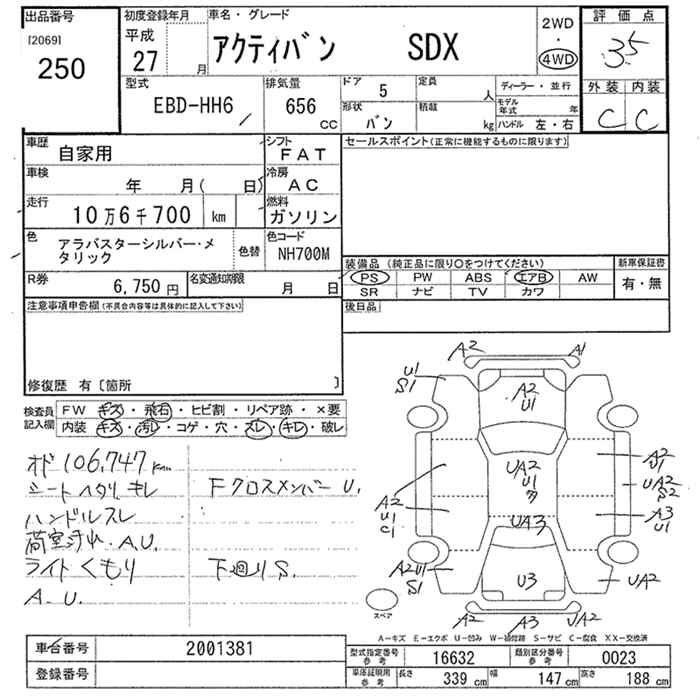 出品番号
[2069]
250
初度登録年月
平成
27 月
車名・グレード
アクティバン SDX
2WD
・
4WD
評価点
3.5
外装 内装
C C
型式
EBD-HH6
排気量
656 CC
ドア
5
定員
人
形状
バン
積載
kg
ディーラー・並行
モデル年式 年
ハンドル 左・右
車歴
自家用
シフト
FAT
車検
年 月( 日)
冷房
AC
走行
10万6千700 km
燃料
ガソリン
色
アラバスターシルバー・メタリック
色替
色コード
NH700M
R券
6,750 円
名変通知期限
月 日
セールスポイント(正常に機能するものに限ります)
装備品 (純正品に限り〇をつけてください)
PS PW ABS エアB AW
SR ナビ TV カワ
新車保証書
有・無
後日品
注意事項申告欄(不具合内容等は具体的に記入して下さい)
修復歴 有〔箇所 〕
検査員記入欄
FW キズ・飛石・ヒビ割・リペア跡・×要
内装 キズ・汚レ・コゲ・穴・スレ・キレ・破レ
オド 106,747 Km
シートヘタリ、キレ
Fクロスメンバー U.
ハンドルスレ
荷室汚れ・A.U.
ライトくもり
下廻り S.
A.U.
A2 A1
U1
S1
A2
U1
A2
U1
UA2
S2
A3
U1
UA2
U1
A2
U1
C1
UA3
A2U1
S1
U3
UA2
A2 A3 UA2
スペア
A-キズ E-エクボ U-凹み W-補修跡 S-サビ C-腐食 XX-交換済
車台番号
2001381
登録番号
型式指定番号
参考
16632
類別区分番号
参考
0023
車庫証明用
参考
長さ 339 cm 幅 147 cm 高さ 188 cm